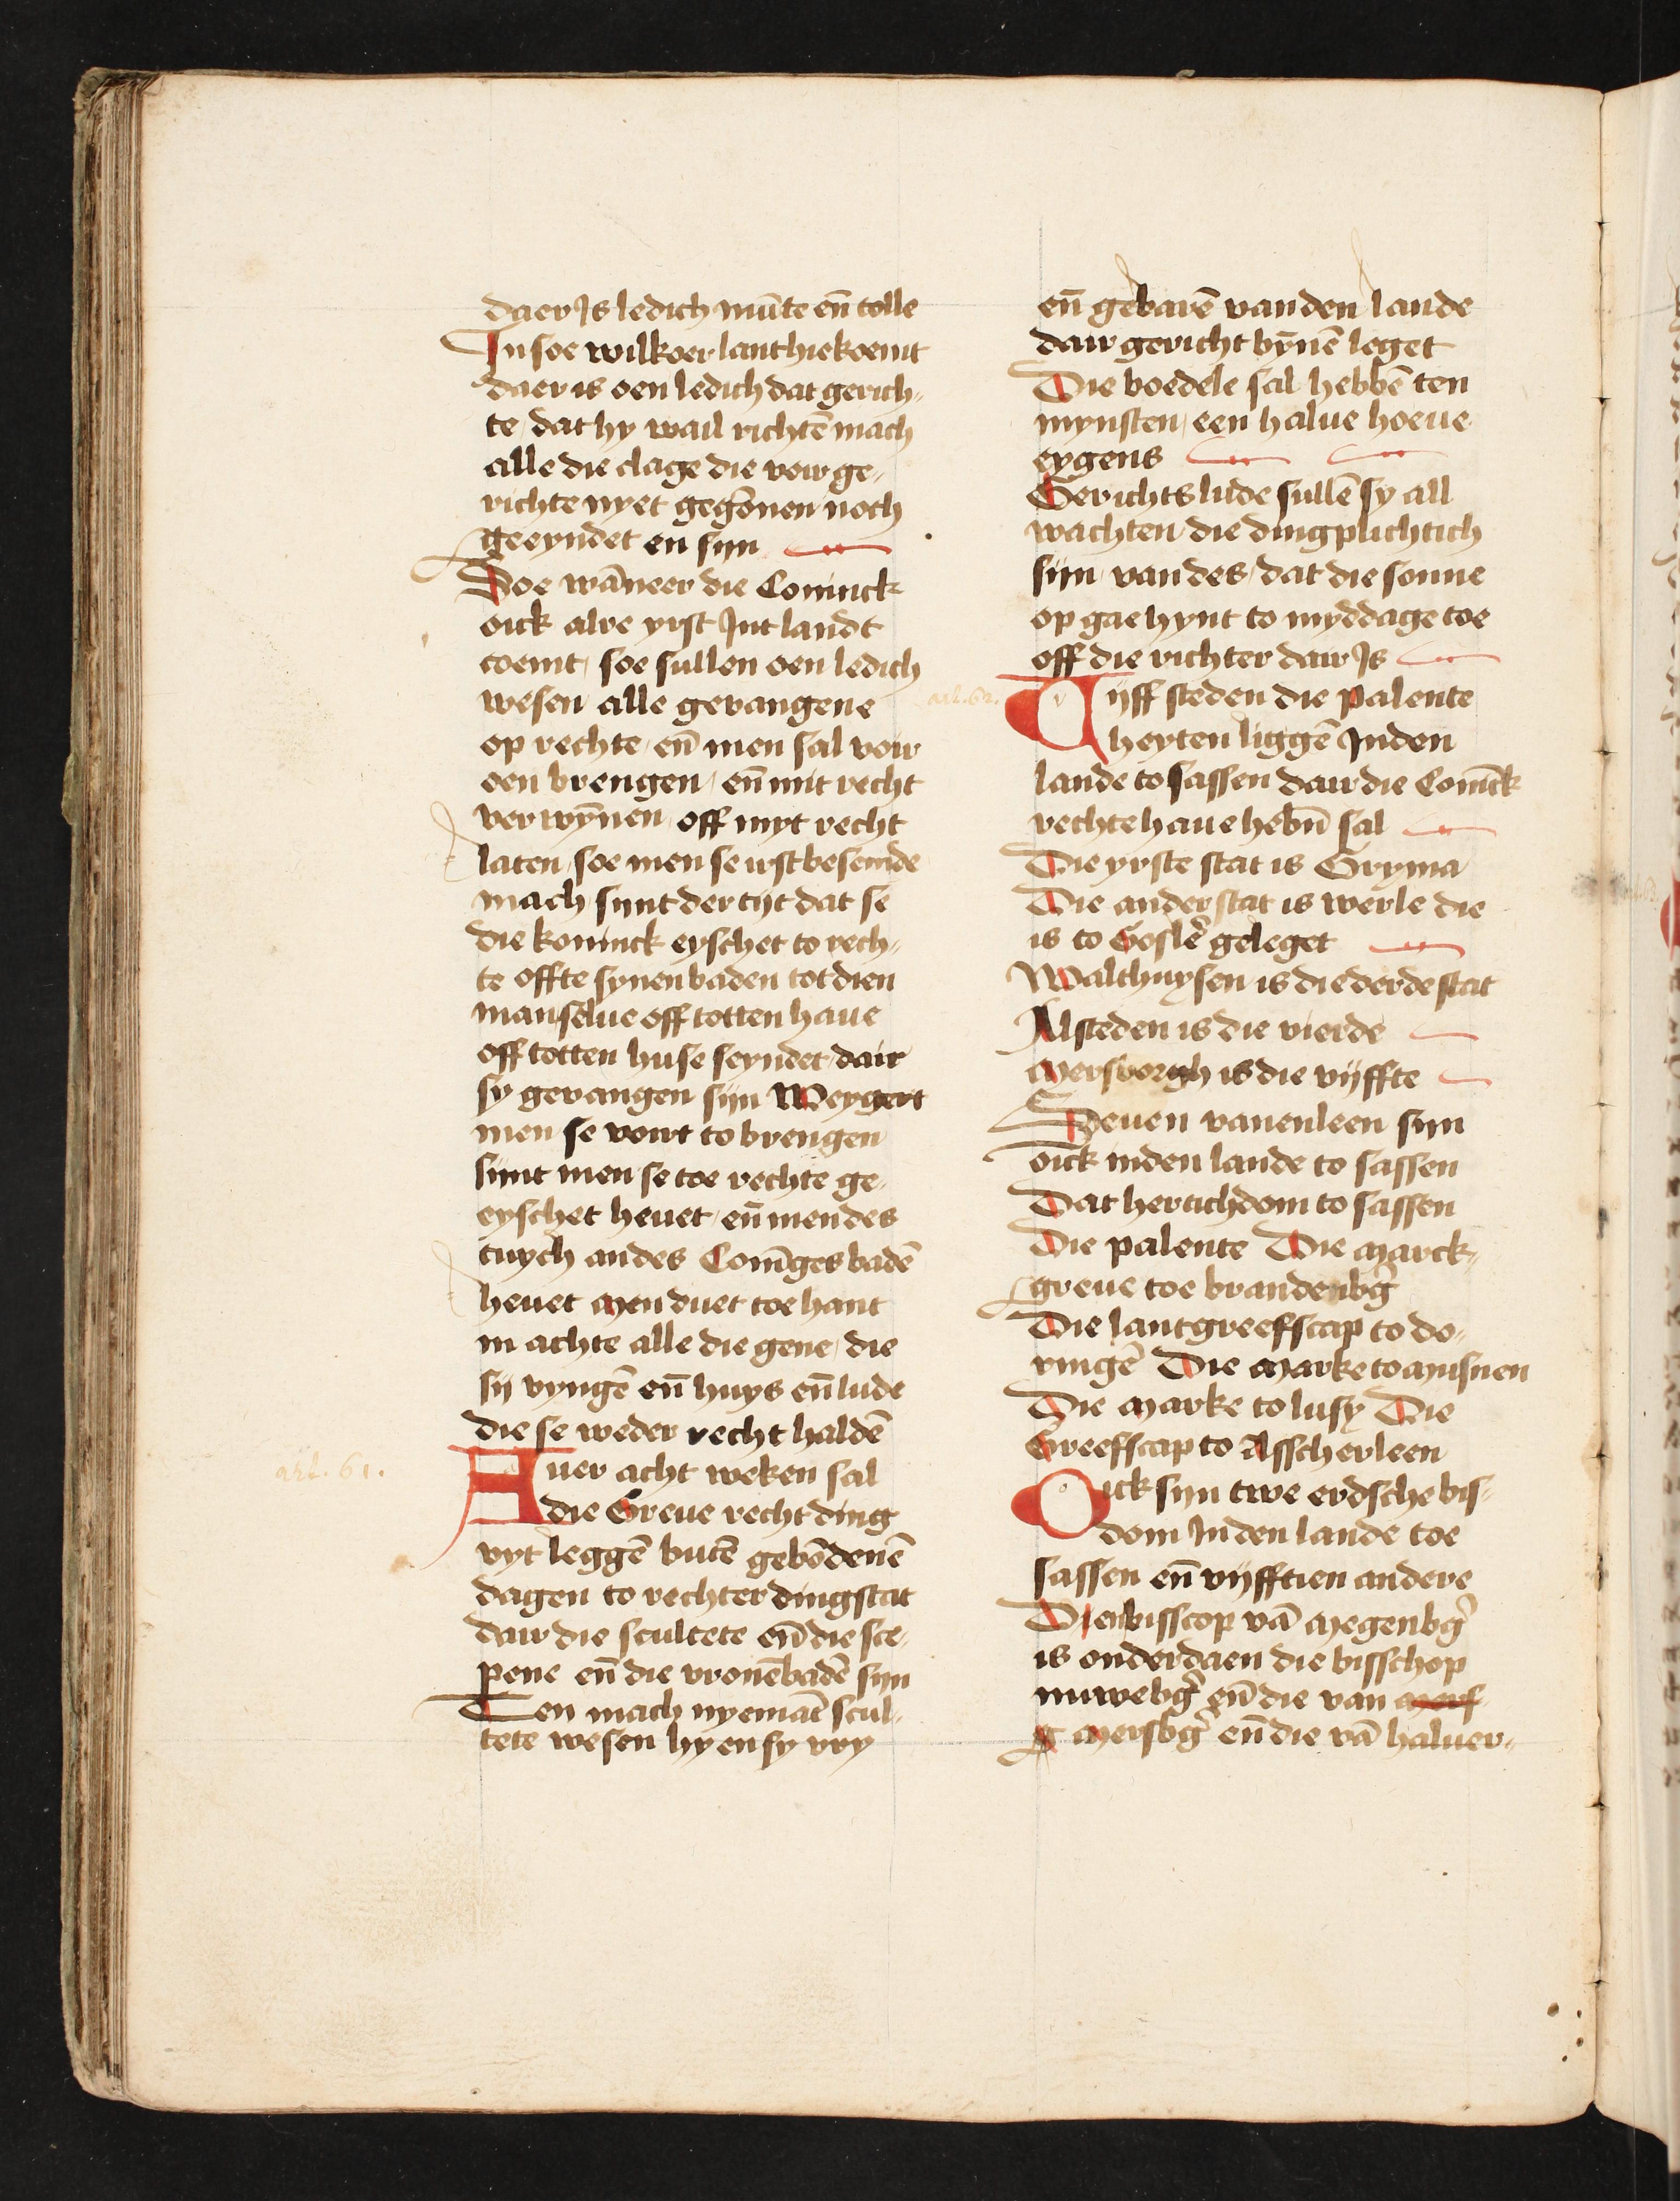 daer Js ledich mu̅te en̅ tolle
Jn soe wilkoer lant hie koemt
daer is oen ledich dat gerich-
te / dat hy wail richte̅ mach
alle die clage die voir ge-
richte nyet gego̅nen noch
geeyndet en sijn
Soe wa̅neer die Coninck
oick alre yrst Jnt landt
coemt / soe sullen oen ledich
wesen alle gevangene
op rechte / en̅ men sal voir
oen brengen / en̅ mit recht
verwy̅nen / off myt recht
laten / soe men se irst besende
mach / sijnt der tijt dat se
die koninck eyschet to rech-
te offte synen baden tot dien
man selue off totten haue
off totten huse seyndet / dair
sy gevangen sijn Weygert
men se voirt to brengen
sijnt men se toe rechte ge-
eyschet heuet / en̅ men des
tuych an des Coni̅ges bade̅
heuet Men duet toe hant
in achte alle die gene / die
sij vynge̅ en̅ huys en̅ lude
die se weder recht halde̅
art. 61.
Auer acht weken sal
die Greue recht ding
vyt legge̅ bute̅ gebo̅dene̅
dagen to rechter dingstat
dair die scultete en̅ die sce-
pene en̅ die vrone̅bade̅ sijn
Ten mach nyema̅t scul-
tete wesen hy en sy vry
en̅ gebare̅ van den lande
dair gericht by̅ne̅ leget
Die boedele sal hebbe̅ ten
mynsten / een halue hoeue
eygens
Gerichts lude sulle̅ sy all
wachten die dingplichtich
sijn van des / dat die sonne
op gae hynt to myddage toe
off die richter dair Js
art. 62.
Vijff steden die palente
heyten ligge̅ Jnden
lande to sassen dair die Coni̅ck
rechte haue hebn̅ sal
Die yrste stat is Gryma
Die ander stat is werle die
is to Gosle̅ geleget
Walthuysen is die derde stat
Alsteden is die vierde
Mersborgh is die vijffte
Seuen vanenleen sijn
oick inden lande to sassen
Dat hertichdom to sassen
Die palente Die Marck-
greue toe brandenbg̅
Die lantgreefscap to do-
ringe̅ Die Marke to Misnen
Die Marke to lusy Die
Greefscap to Asscherleen
Oick sijn twe erdsche bis-
dom Jn den lande toe
sassen en̅ vijfftien andere
Dien bisscop va̅ Megenbg̅
is onderdaen die bisschop
nuwebg̅ en̅ die van
Mersbg̅ en̅ die va̅ haluer-